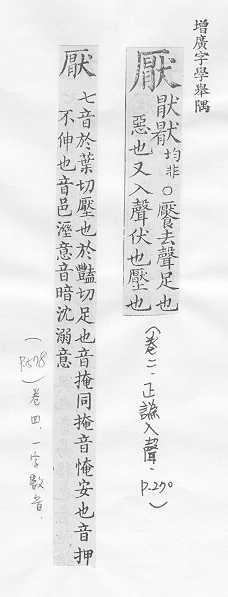 增廣字學舉隅
厭
猒猒均非○饜去聲足也
惡也又入聲伏也壓也
(卷二.正譌入聲.
P.270)
厭
七音於葉切壓也於豔切足也音掩同掩音愔安也音押
不伸也音邑溼意音暗沈溺意
(P.578)卷四.一字數音.